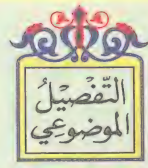 التَّفْصِيلُ
الموْضوعِي